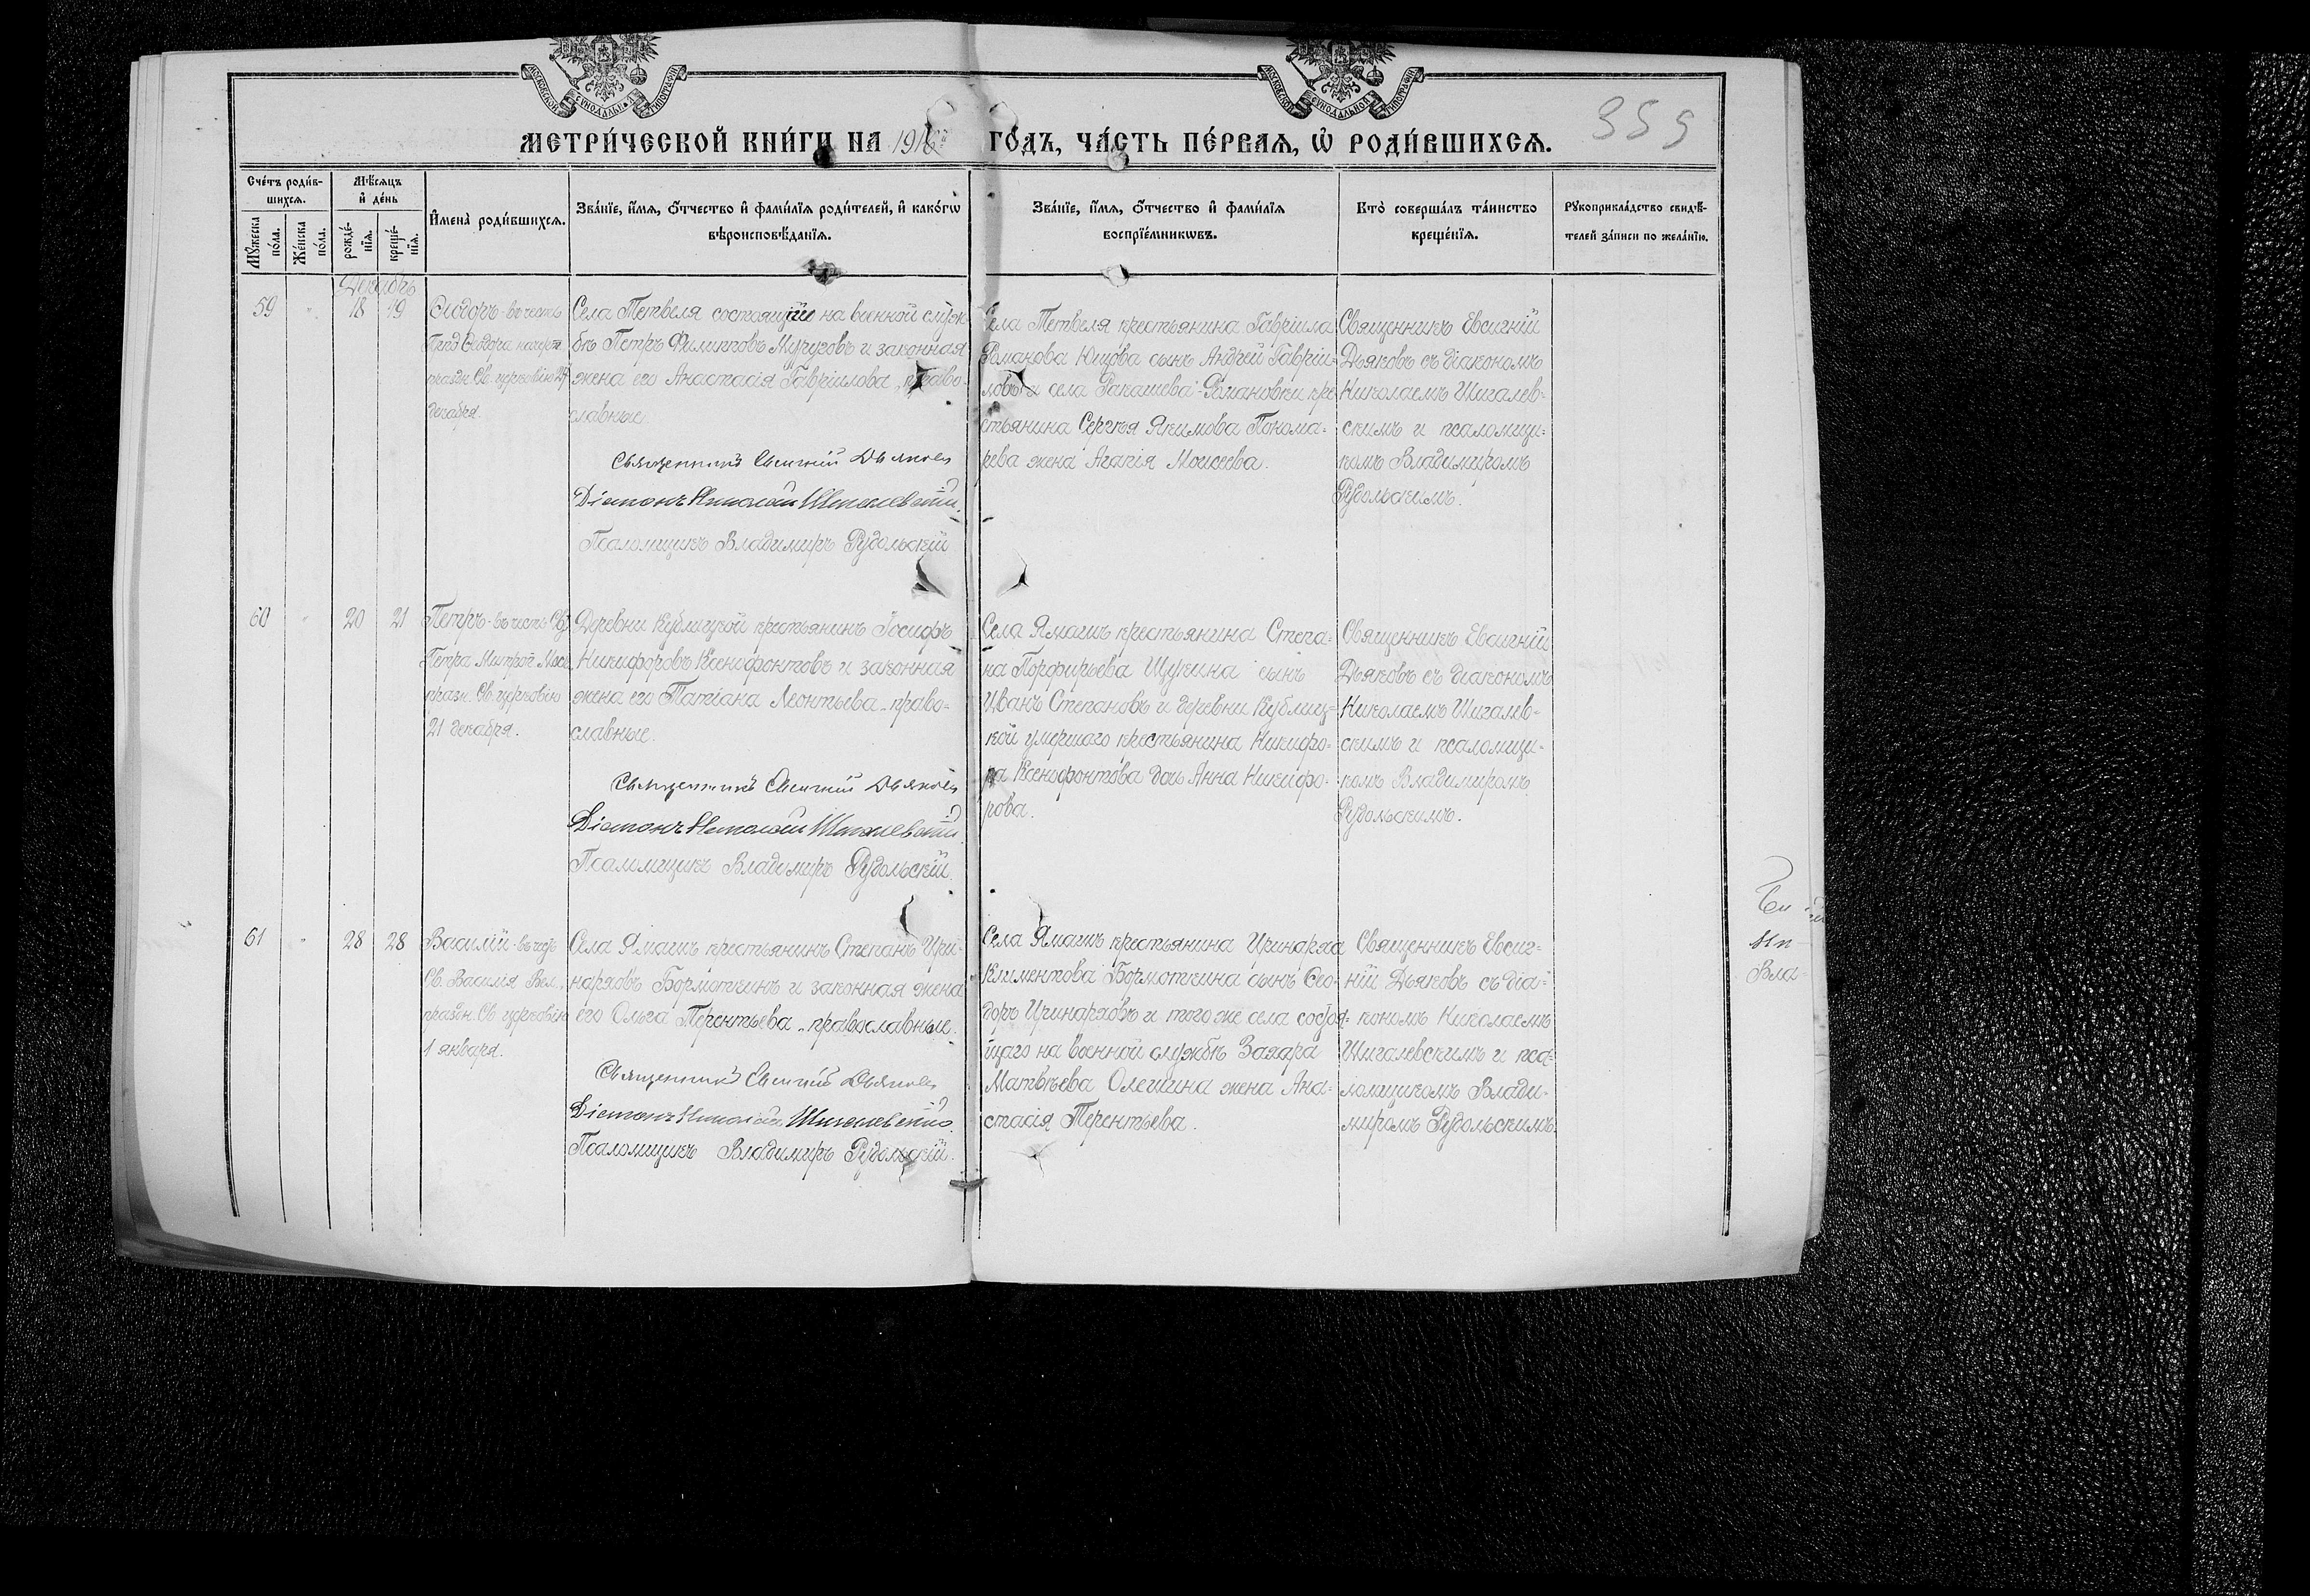 МОСКОВСКОЙ СѴНОДАЛЬНОЙ ТИПОГРАФІИ
МОСКОВСКОЙ СѴНОДАЛЬНОЙ ТИПОГРАФІИ
МЕТРИ́ЧЕСКОЙ КНИ́ГИ НА 1916 ГО́ДЪ, ЧА́СТЬ ПЕ́РВАѦ, Ѡ҆ РОДИ́ВШИХСѦ.
Сче́тъ роди́в-
шихсѧ.
Мѣ́сѧцъ
и҆ де́нь
Мꙋ́жеска по́ла.
Же́нска по́ла.
рожде́-
нїѧ.
креще́-
нїѧ.
И҆мена̀ роди́вшихсѧ.
Зва́нїе, и҆́мѧ, ѻ҆́тчество и҆ фами́лїѧ роди́телей, и҆ како́гѡ
вѣроисповѣ́данїѧ.
Зва́нїе, и҆́мѧ, ѻ҆́тчество и҆ фами́лїѧ
воспрїе́мникѡвъ.
Кто̀ соверша́лъ та́инство
креще́нїѧ.
Рꙋкоприкла́дство свидѣ́-
телей за́писи по жела́нїю.
359
Декабрь
59
18
19
Ѳеодоръ - въ честь
Ѳеодора начерт.
праздн. Св. церковію 27
декабря.
Села Тетвеля состоящій на военной служ
бѣ Петръ Филипповъ и законная
жена его Анастасія Гавріилова, право-
славные
Священникъ Евсигній Дьяковъ
Діаконъ Николай Шигалевскій.
Псаломщикъ Владиміръ Рудольскій
Села Тетвеля крестьянина Гавріила
Романова Юцова сынъ Андрей Гавріи-
ловъ и села Романовки кре
стьянина Сергѣя Якимова Понома-
рева жена Агапія Моисеева.
Священникъ Евсигній
Дьяковъ съ діакономъ
Николаемъ Шигалев-
скимъ и псаломщи-
комъ Владиміромъ
Рудольскимъ.
60
20
21
Петръ - въ честь Св.
Петра Митроп. Моск
праздн. Св. церковію
21 декабря.
Деревни Кублицкой крестьянинъ Іосифъ
Никифоровъ Ксенофонтовъ и законная
жена его Татіана Леонтьева - право-
славные.
Священникъ Евсигній Дьяковъ
Діаконъ Николай Шигалевскій
Псаломщикъ Владиміръ Рудольскій.
Села Ямашъ крестьянина Степа-
на Порфирьева Щукина сынъ
Иванъ Степановъ и деревни Кублиц-
кой умершаго крестьянина Никифо-
ра Ксенофонтова дочь Анна Никифо-
рова.
Священникъ Евсигній
Дьяковъ съ діакономъ
Николаемъ Шигалев-
скимъ и псаломщи-
комъ Владиміромъ
Рудольскимъ.
61
28
28
Василій - въ честь
Св. Василія Вел.,
праздн. Св. церковію
1 января.
Села Ямашъ крестьянинъ Степанъ Ири-
нарховъ Бормоткинъ и законная жена
его Ольга Терентьева - православные.
Священникъ Евсигній Дьяковъ
Діаконъ Николай Шигалевскій.
Псаломщикъ Владиміръ Рудольскій.
Села Ямашъ крестьянина Иринарха
Климентова Бормоткина сынъ Ѳео-
доръ Иринарховъ и того же села состоя-
щаго на военной службѣ Захара
Матвѣева Олешина жена Ана-
стасія Терентьева.
Священникъ Евсиг-
ній Дьяковъ съ діа-
кономъ Николаемъ
Шигалевскимъ и пса-
ломщикомъ Влади-
міромъ Рудольскимъ.
Вла-